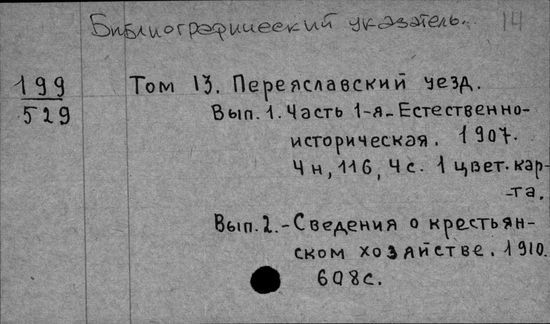 Библиографический указатель.. 14
199
529
Том 13. Переяславский уезд.
Вып. 1. Часть 1-я - Естественно-
историческая. 1907.
4н, 116, 4с. 1 цвет. кар-
-та.
Вып. 2. - Сведения о крестьян-
ском хозяйстве. 1910.
608с.